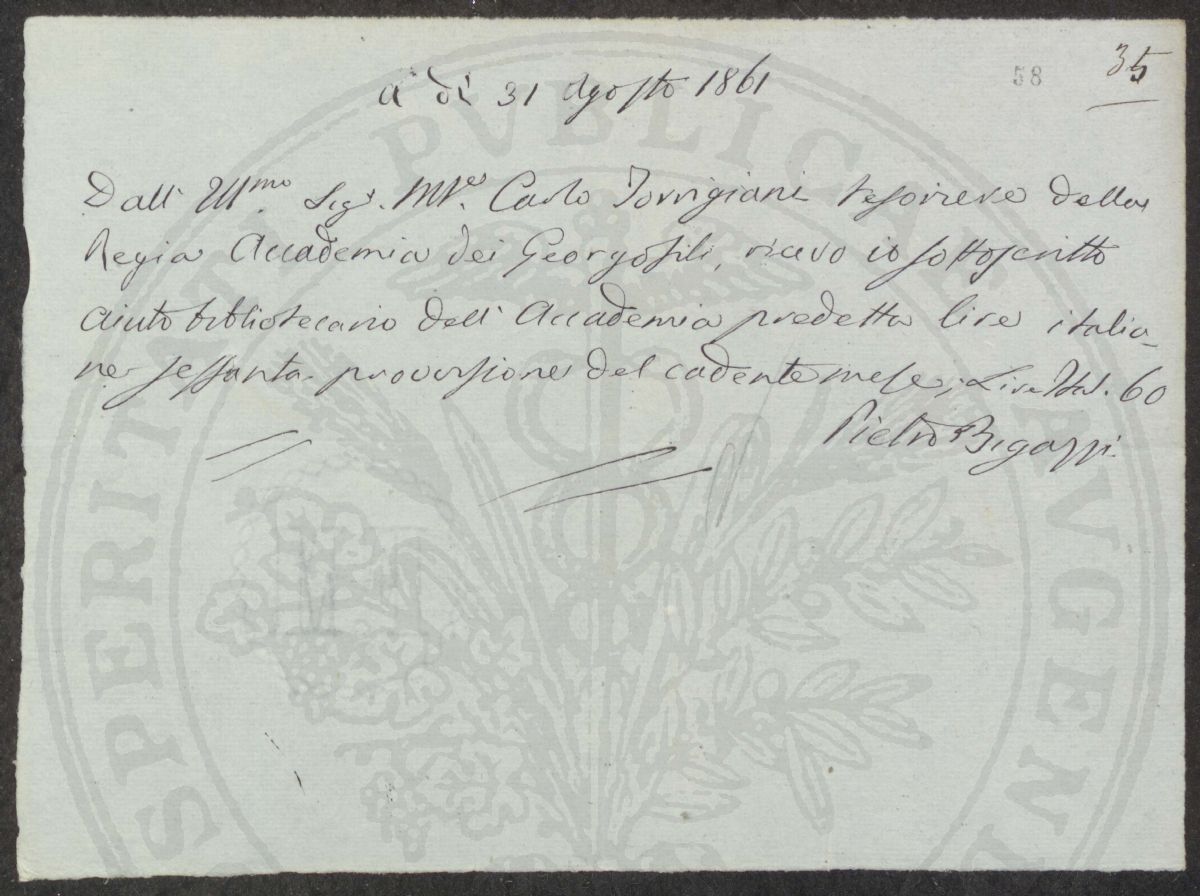 58 35
a dì 31 Agosto 1861
Dall' Ill.mo Sig.r M.se Carlo Torrigiani tesoriere della
Regia Accademia dei Georgofili, ricevo io sottoscritto
aiuto bibliotecario dell' Accademia predetta lire italia-
ne sessanta provvisione del cadente mese; Lire Ital. 60
Pietro Bigazzi
PROSPERITATI PVBLICAE AVGENDAE